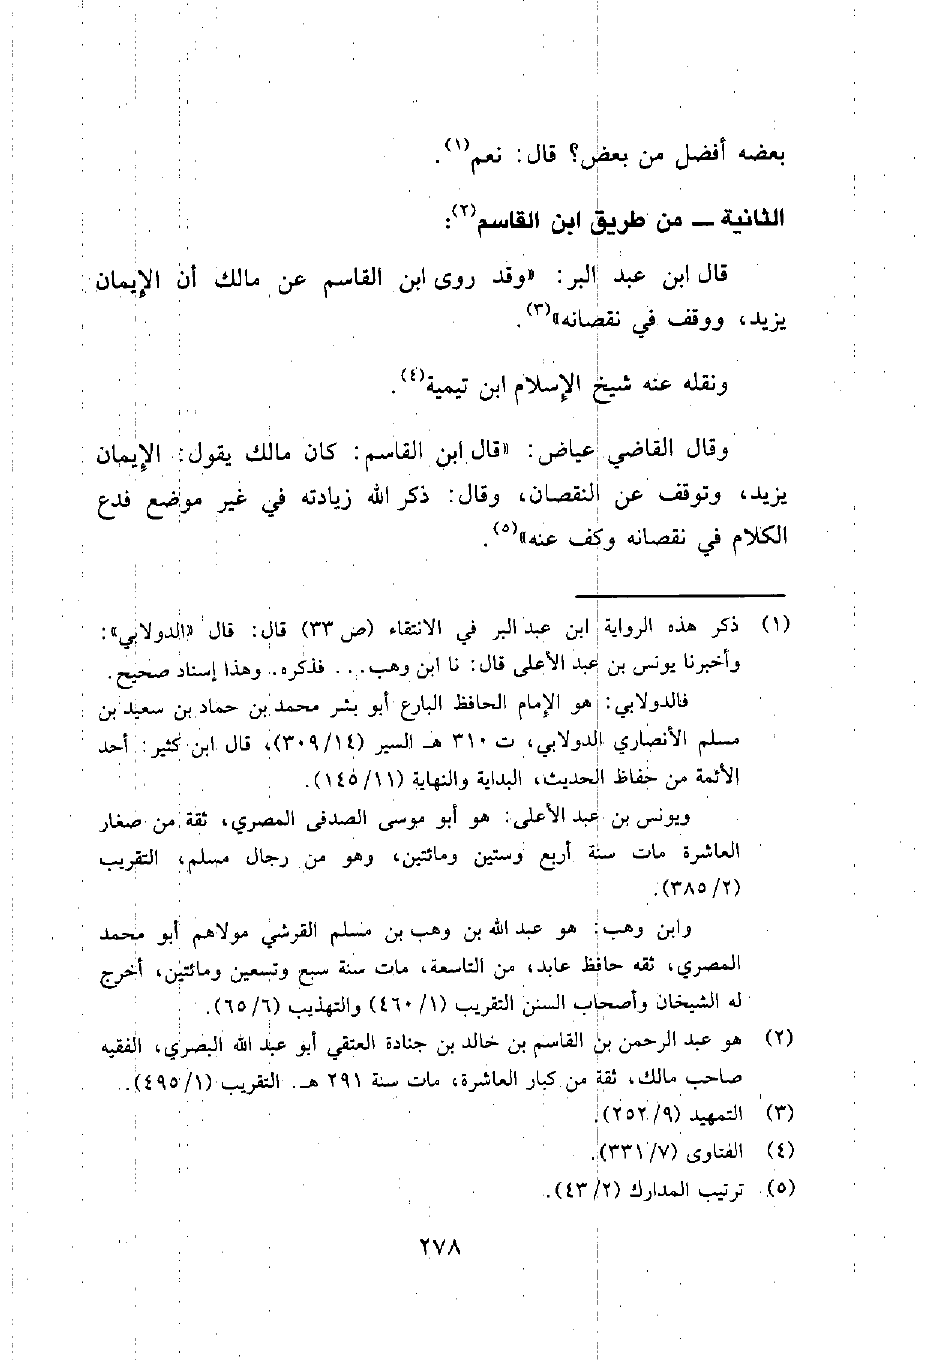 بعضه أفضل من بعض؟ قال: نعم(١).
الثانية ــ من طريق ابن القاسم(٢):
قال ابن عبد البر: «وقد روى ابن القاسم عن مالك أن الإيمان
يزيد، ووقف في نقصانه»(٣).
ونقله عنه شيخ الإسلام ابن تيمية(٤).
وقال القاضي عياض: «قال ابن القاسم: كان مالك يقول: الإيمان
يزيد، وتوقف عن النقصان، وقال: ذكر الله زيادته في غير موضع فدع
الكلام في نقصانه وكف عنه»(٥).
(١) ذكر هذه الرواية ابن عبد البر في الانتقاء (ص ٣٣) قال: قال «الدولابي»:
وأخبرنا يونس بن عبد الأعلى قال: نا ابن وهب... فذكره. وهذا إسناد صحيح.
فالدولابي: هو الإمام الحافظ البارع أبو بشر محمد بن حماد بن سعيد بن
مسلم الأنصاري الدولابي، ت ٣١٠ هـ السير (٣٠٩/١٤)، قال ابن كثير: أحد
الأئمة من حفاظ الحديث، البداية والنهاية (١٤٥/١١).
ويونس بن عبد الأعلى: هو أبو موسى الصدفى المصري، ثقة من صغار
العاشرة مات سنة أربع وستين ومائتين، وهو من رجال مسلم، التقريب
(٣٨٥/٢).
وابن وهب: هو عبد الله بن وهب بن مسلم القرشي مولاهم أبو محمد
المصري، ثقه حافظ عابد، من التاسعة، مات سنة سبع وتسعين ومائتين، أخرج
له الشيخان وأصحاب السنن التقريب (٤٦٠/١) والتهذيب (٦٥/٦).
(٢) هو عبد الرحمن بن القاسم بن خالد بن جنادة العتقي أبو عبد الله البصري، الفقيه
صاحب مالك، ثقة من كبار العاشرة، مات سنة ٢٩١ هـ. التقريب (٤٩٥/١).
(٣) التمهيد (٢٥٢/٩).
(٤) الفتاوى (٣٣١/٧).
(٥) ترتيب المدارك (٤٣/٢).
٢٧٨